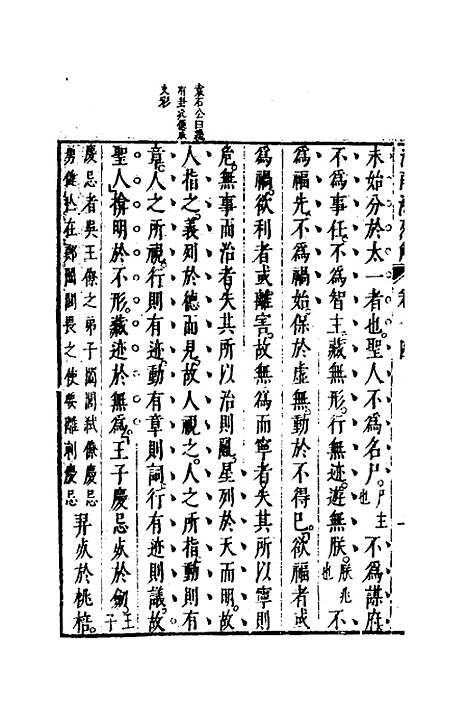 未始分於太一者也聖人不為名尸尸主也不為謀府
不為事任不為智主藏無形行無迹遊無朕朕兆也不
為福先不為禍始保於虛無動於不得已欲福者或
為禍欲利者或離害故無為而寧者失其所以寧則
危無事而治者失其所以治則亂星列於天而明故
人指之義列於德而見故人視之人之所指動則有
章人之所視行則有迹動有章則詞行有迹則議故
聖人揜明於不形藏迹於無為王子慶忌死於劍王子
慶忌者吳王僚之弟子闔閭弒僚慶忌
勇健亡在鄭闔閭畏之使要離刺慶忌
羿死於桃棓
袁石公曰